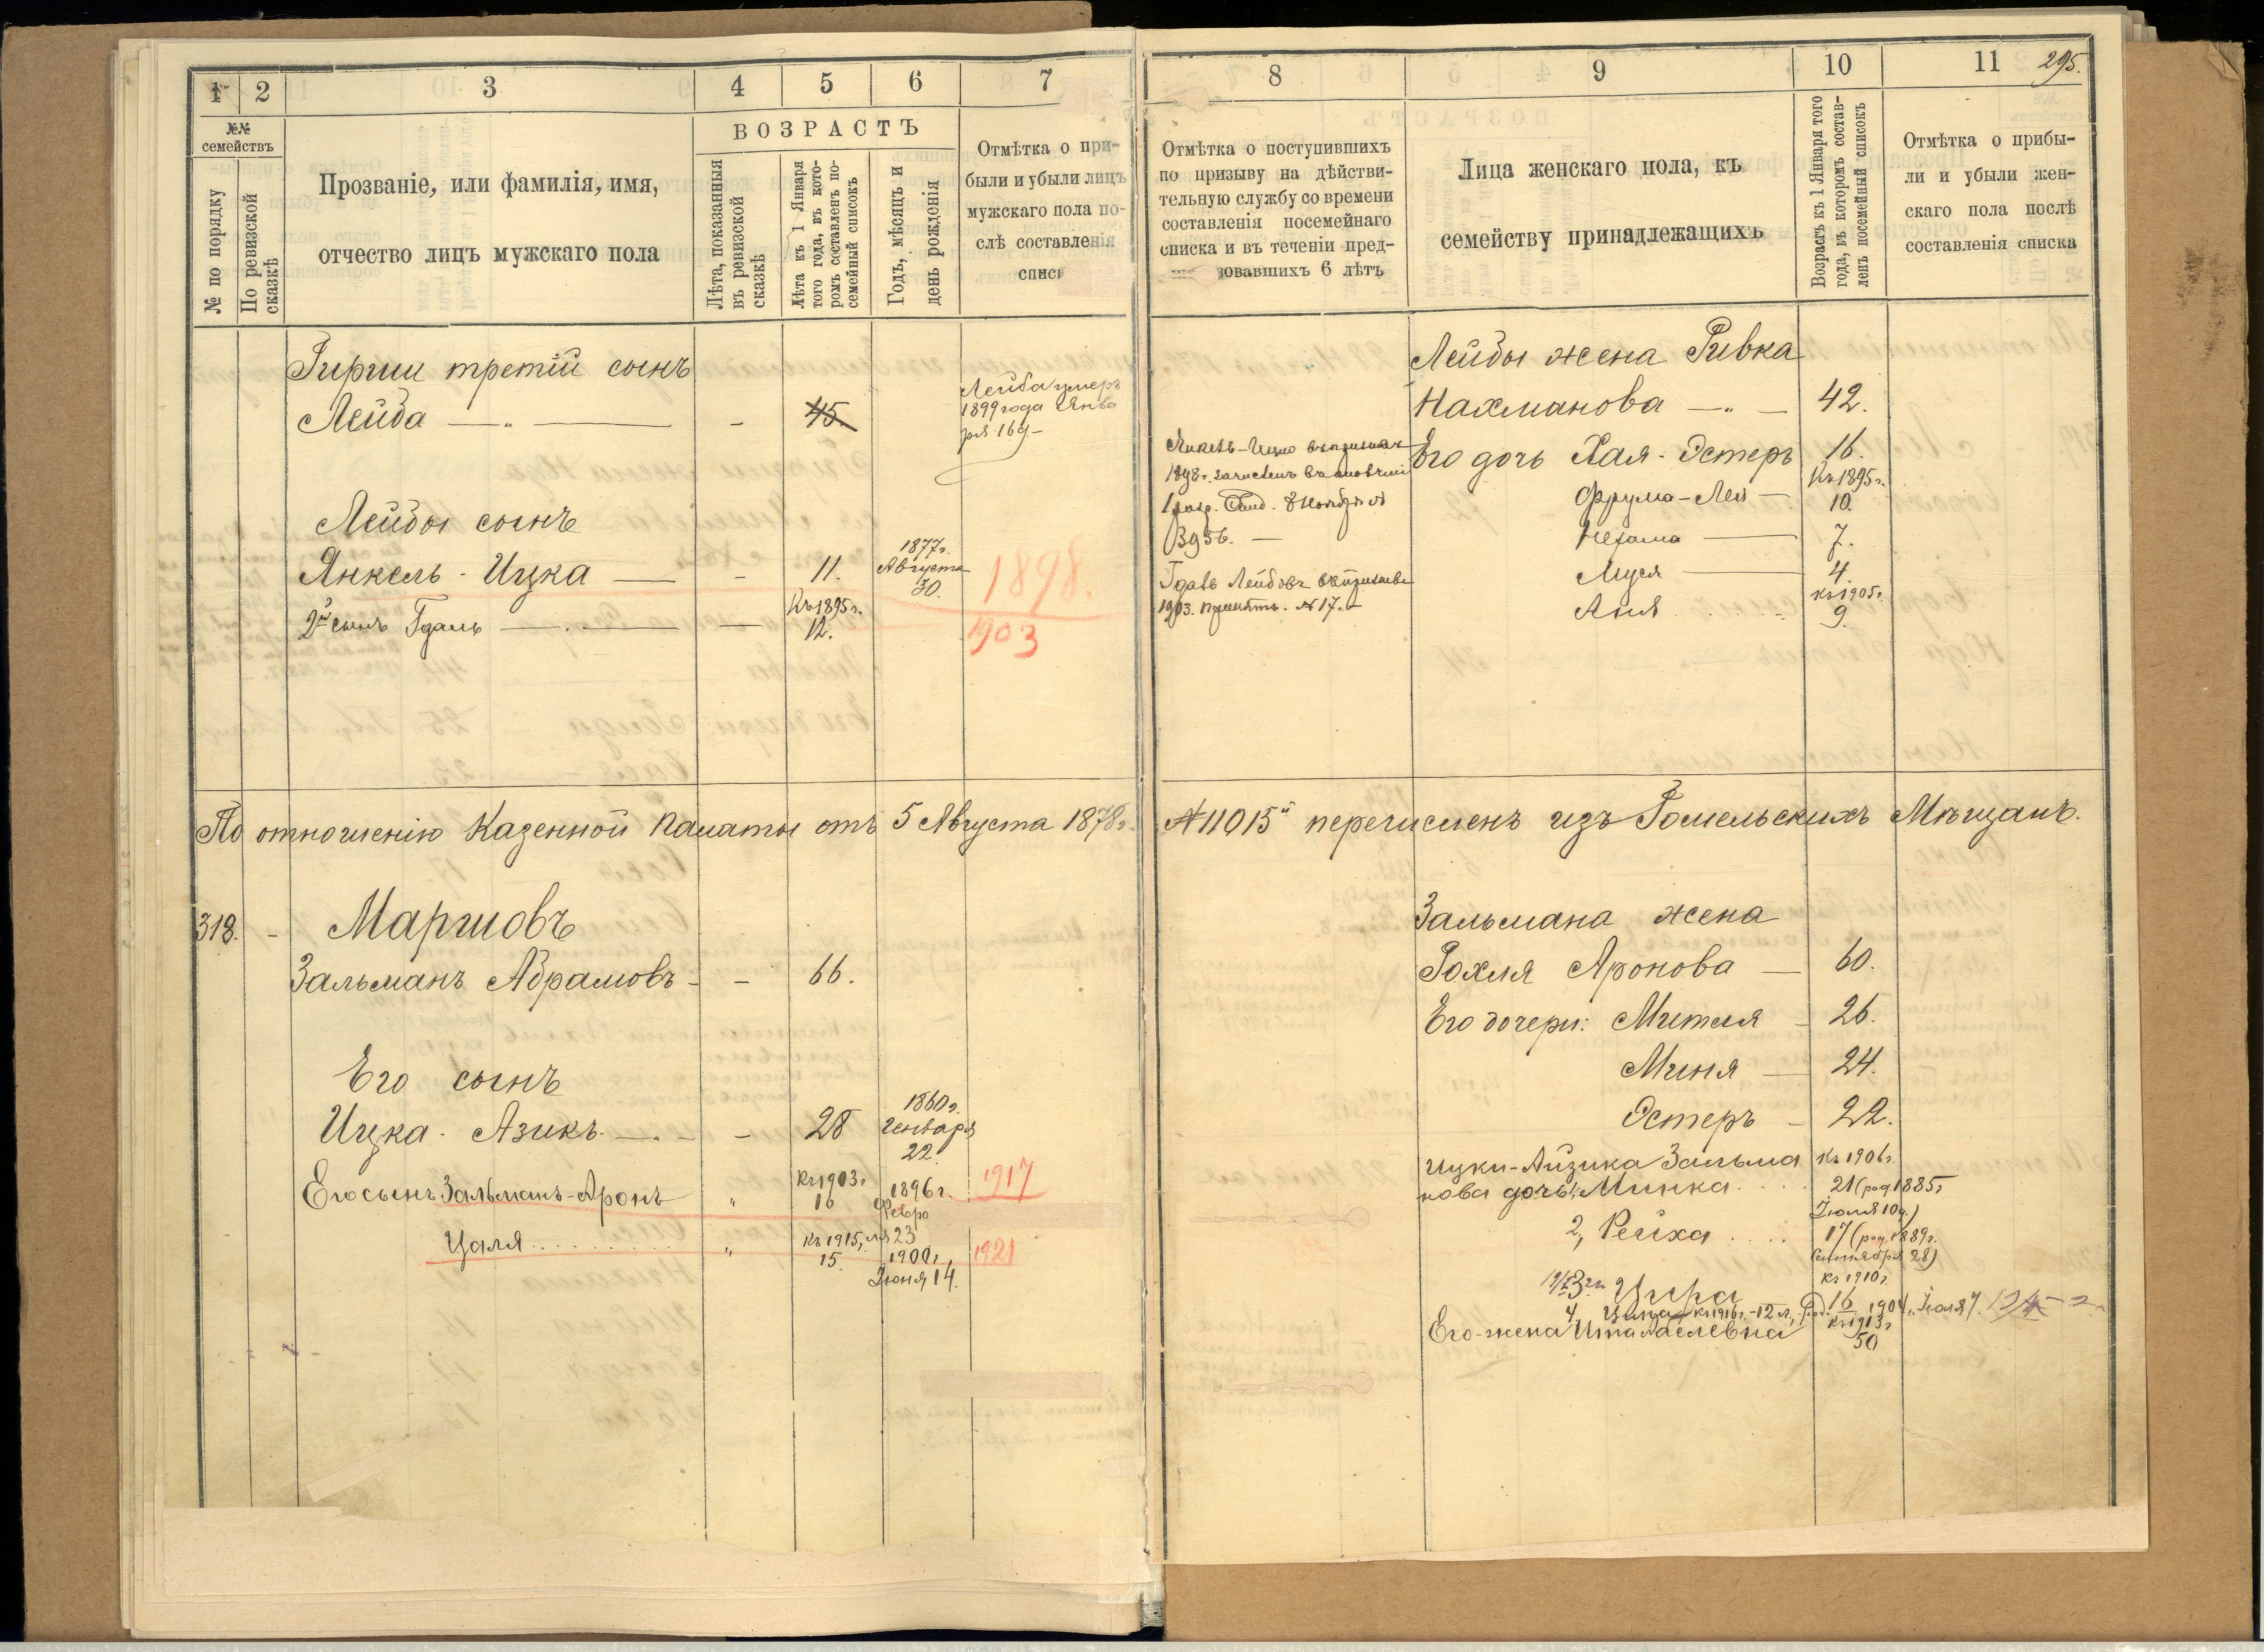 1 2 3 4 5 6 7
№№ семействъ
№ по порядку
По ревизской сказкѣ
Прозваніе, или фамилія, имя,
отчество лицъ мужскаго пола
ВОЗРАСТЪ
Лѣта, показанныя
въ ревизской
сказкѣ
Лѣта къ 1 Января
того года, въ кото-
ромъ составленъ по-
семейный списокъ
Годъ, мѣсяцъ и
день рожденія
Отмѣтка о при-
были и убыли лицъ
мужскаго пола по-
слѣ составленія
спис
Гирши третій сынъ
Лейба — „ — - 45.
Лейба умеръ
1899 года Янва
ря 16 д –
Лейбы сынъ
Янкель - Ицка — - 11.
1877 г.
Августа
30.
1898.
2й сынъ Гдаль — . — —
Къ 1895 г.
12.
1903
По отношенію Казенной Палаты отъ 5 Августа 1878 г.
318. -
Маршовъ
Зальманъ Абрамовъ - - 66.
Его сынъ
Ицка - Азикъ - 28
1860 г.
Генваря
22.
Его сынъ Зальманъ-Аронъ „
Къ 1903 г
16
1896 г.
Февра
ля 23
1917
Цаля . . . . . . . . „
Къ 1915 г.
15.
1900 г.
Іюня 14.
1921
8 9 10 11 295.
Отмѣтка о поступившихъ
по призыву на дѣйстви-
тельную службу со времени
составленія посемейнаго
списка и въ теченіи пред-
зовавшихъ 6 лѣтъ
Лица женскаго пола, къ
семейству принадлежащихъ
Возрастъ къ 1 Января того
года, въ которомъ состав-
ленъ посемейный списокъ
Отмѣтка о прибы-
ли и убыли жен-
скаго пола послѣ
составленія списка
Лейбы жена Ривка
Нахманова — „ — 42.
Янкель-Ицко въ призывъ
1898 г. зачисленъ въ ополченіе
1 разр. 8 Ноября №
3956. —
Его дочь Хая - Эстеръ 16.
Къ 1895 г.
Фрума-Лея — 10.
Нехама — 7.
Муся — 4.
Гдаль Лейбовъ въ призывъ
1903. принятъ. № 17. –
Къ 1905 г.
Аня . . . . . 9.
№ 11015й перечисленъ изъ Гомельскихъ Мѣщанъ.
Зальмана жена
Рохля Аронова — 60.
Его дочери: Митля – 26.
Миня — 24.
Эстеръ – 22.
Ицки-Айзика Зальма
нова дочь 1, Минка . . . .
Къ 1906 г.
21 (род. 1885 г
Іюля 10 д.)
2, Рейха . . . .
17 (род. 1889 г.
Сентября 28)
Къ 1910 г.
3. Цира 16
4, къ 1916 г. - 12 л., род. 1904 г. Іюля 7.
Его-жена Ита
Къ 1913 г
50